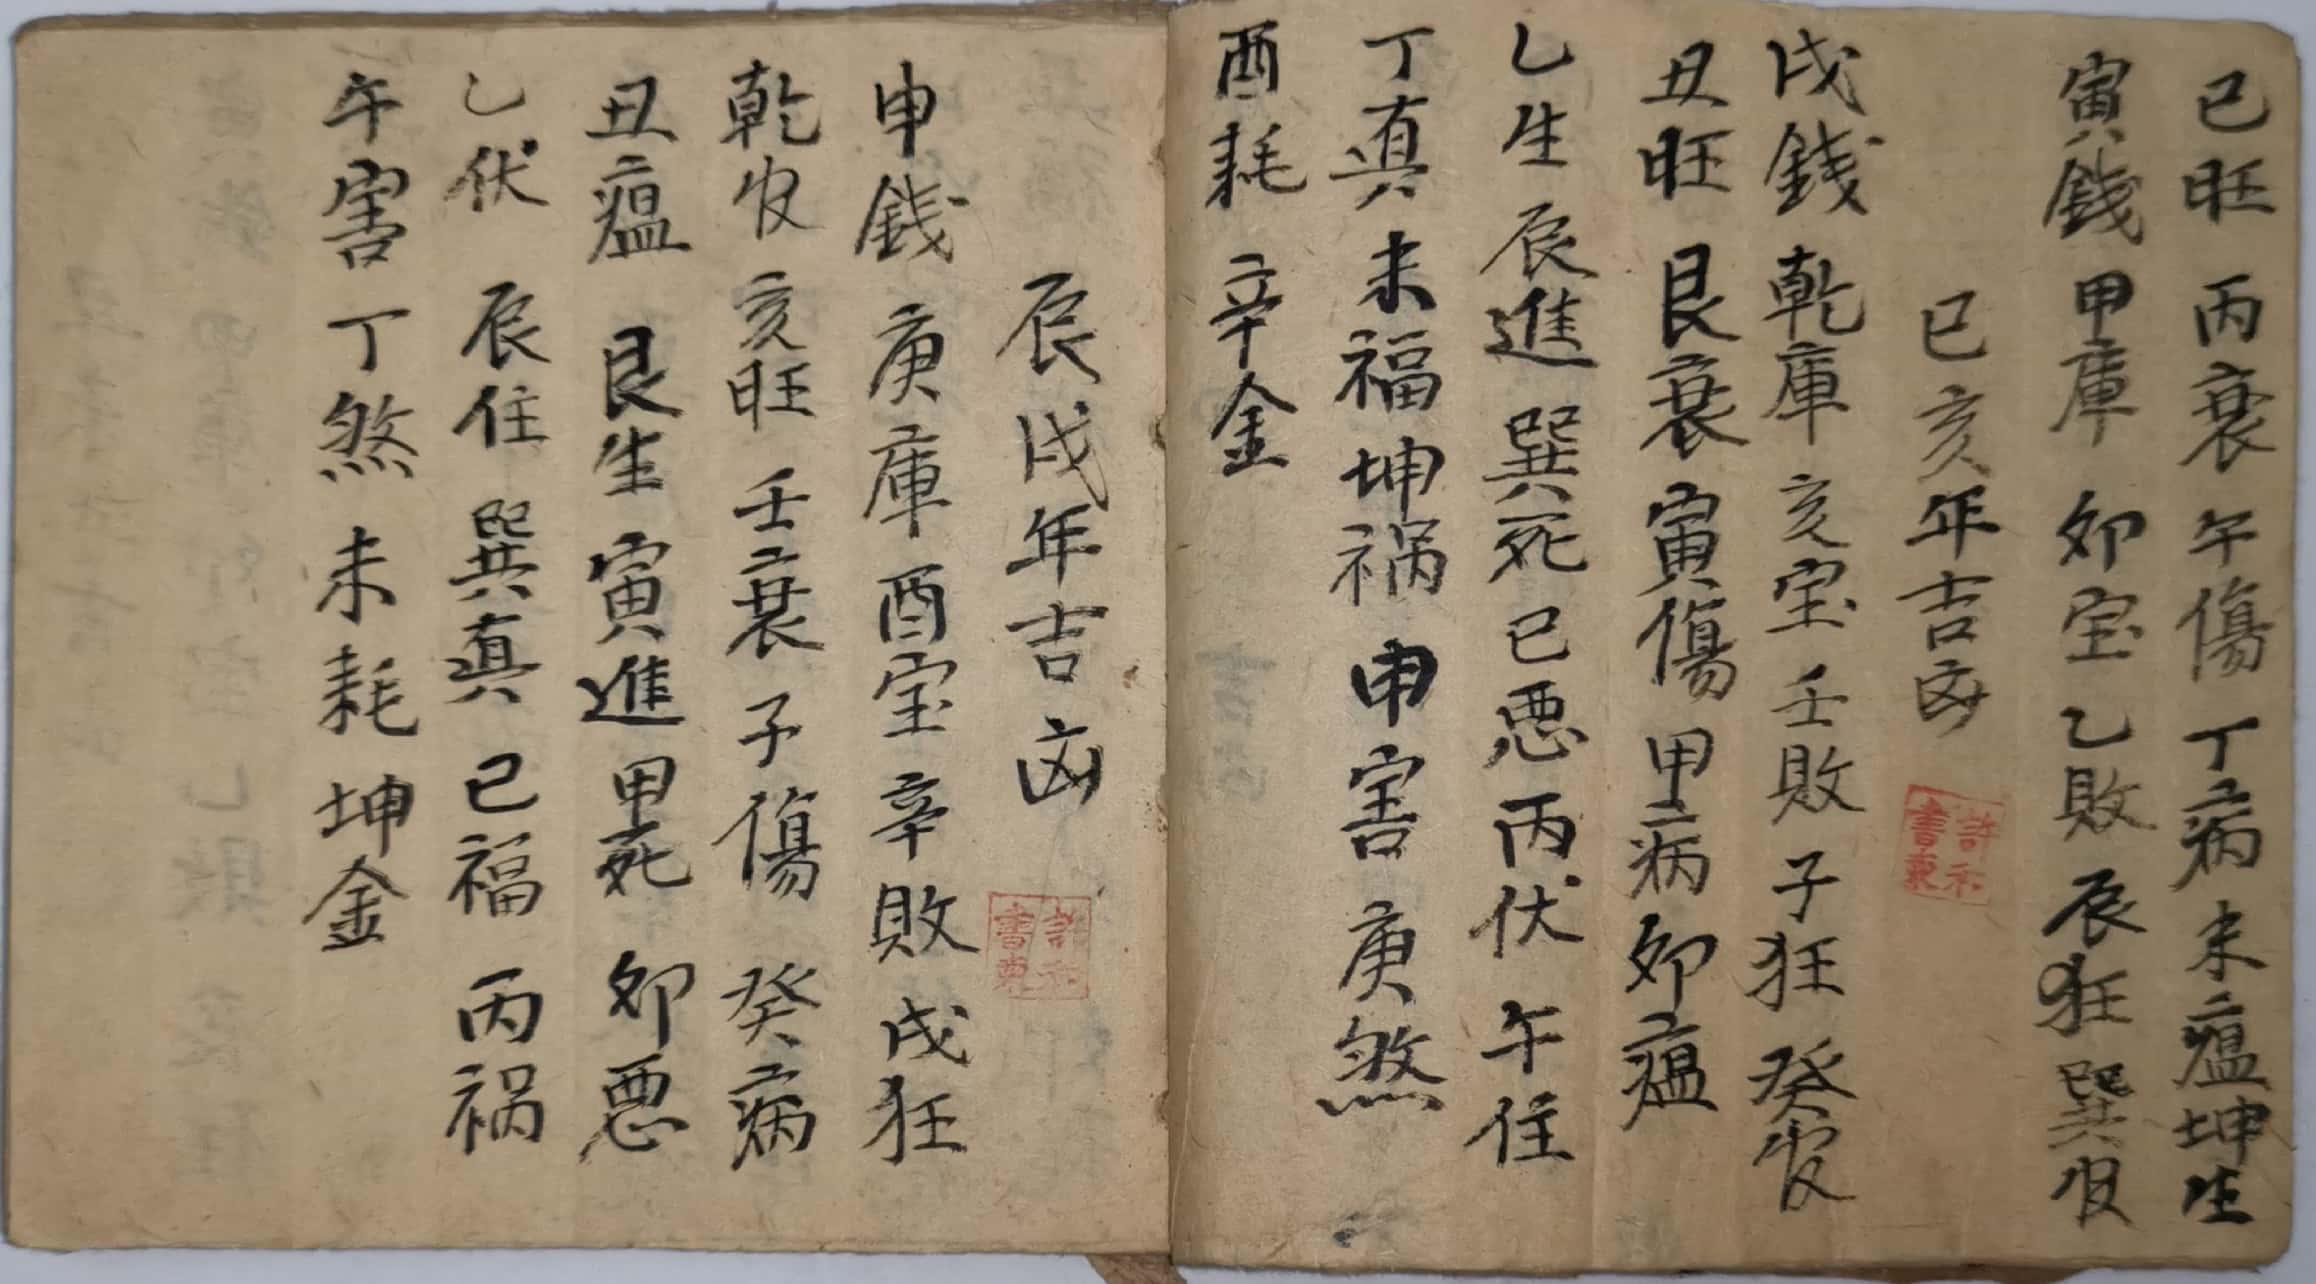 巳旺丙衰午傷丁病未瘟坤生
寅錢甲庫卯宝乙敗辰狂巽
巳亥年吉凶
戌錢乾庫亥宝壬敗子狂癸
丑旺艮衰寅傷甲病卯瘟
乙生辰進巽死巳悪丙伏午住
丁真未福坤祸申害庚煞
酉耗辛金
辰戌年吉凶
申錢庚庫酉宝辛敗戌狂
乾亥旺壬衰子傷癸病
丑瘟艮生寅進甲死卯悪
乙伏辰住巽真巳福丙祸
午害丁煞未耗坤金